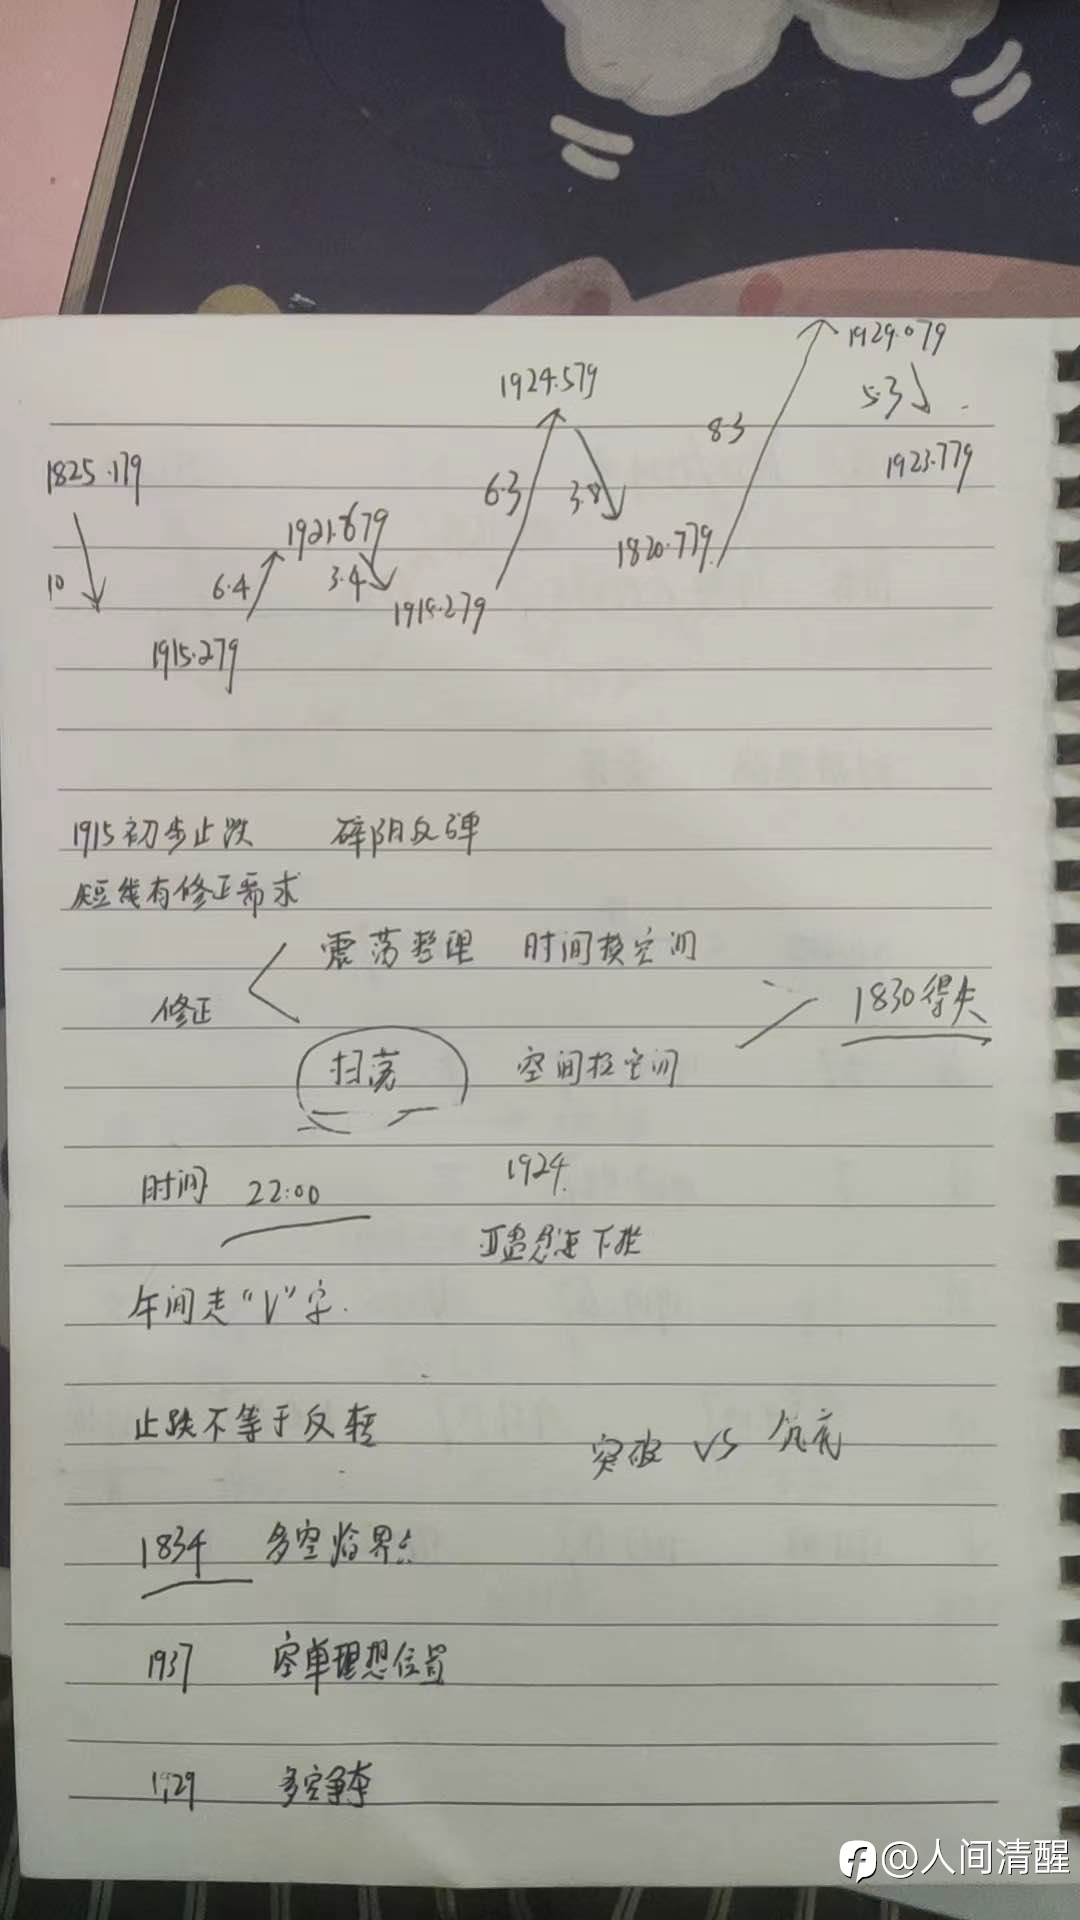 1929.079
1924.579
5.3
8.3
1825.179
1923.779
6.3
3.8
1921.679
1820.779
10
6.4
3.4
1918.279
1915.279
1915初步止跌
阴反弹
短线有修正需求
震荡整理 时间换空间
修正
1830得失
扫荡
空间换空间
时间 22:00
1924.
下
午间走“V”字.
止跌不等于反转
突破 VS
1834 多空临界点
1937 空单理想位置
1929 多空争夺
@人间清醒